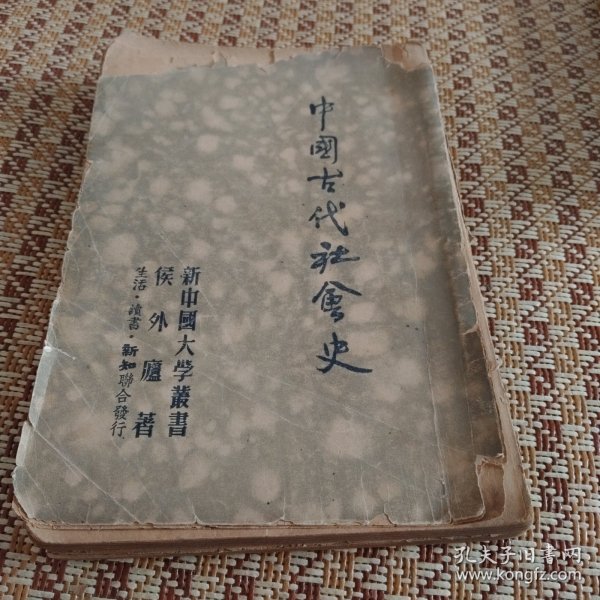 中國古代社會史
新中國大学叢書
侯外廬著
生活·讀書·新知聯合發行
孔夫子旧書网
www.kongfz.com